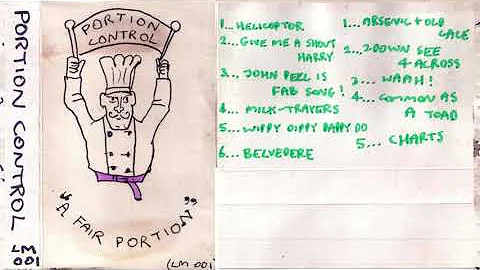 PORTION CONTROL
LM
001
PORTION
CONTROL
"A FAIR PORTION"
(LM 001)
1... HELICOPTOR
2... GIVE ME A SHOUT
HARRY
3.. JOHN PEEL IS
FAB SONG!
4... MILK-TRAYERS
5... WIPPY DIPPY DAPPY DO
6... BELVEDERE
1... ARSENIC + OLD
LACE
2.. 2DOWN SEE
4 ACROSS
3... WAAH!
4... COMMON AS
A TOAD
5... CHARTS